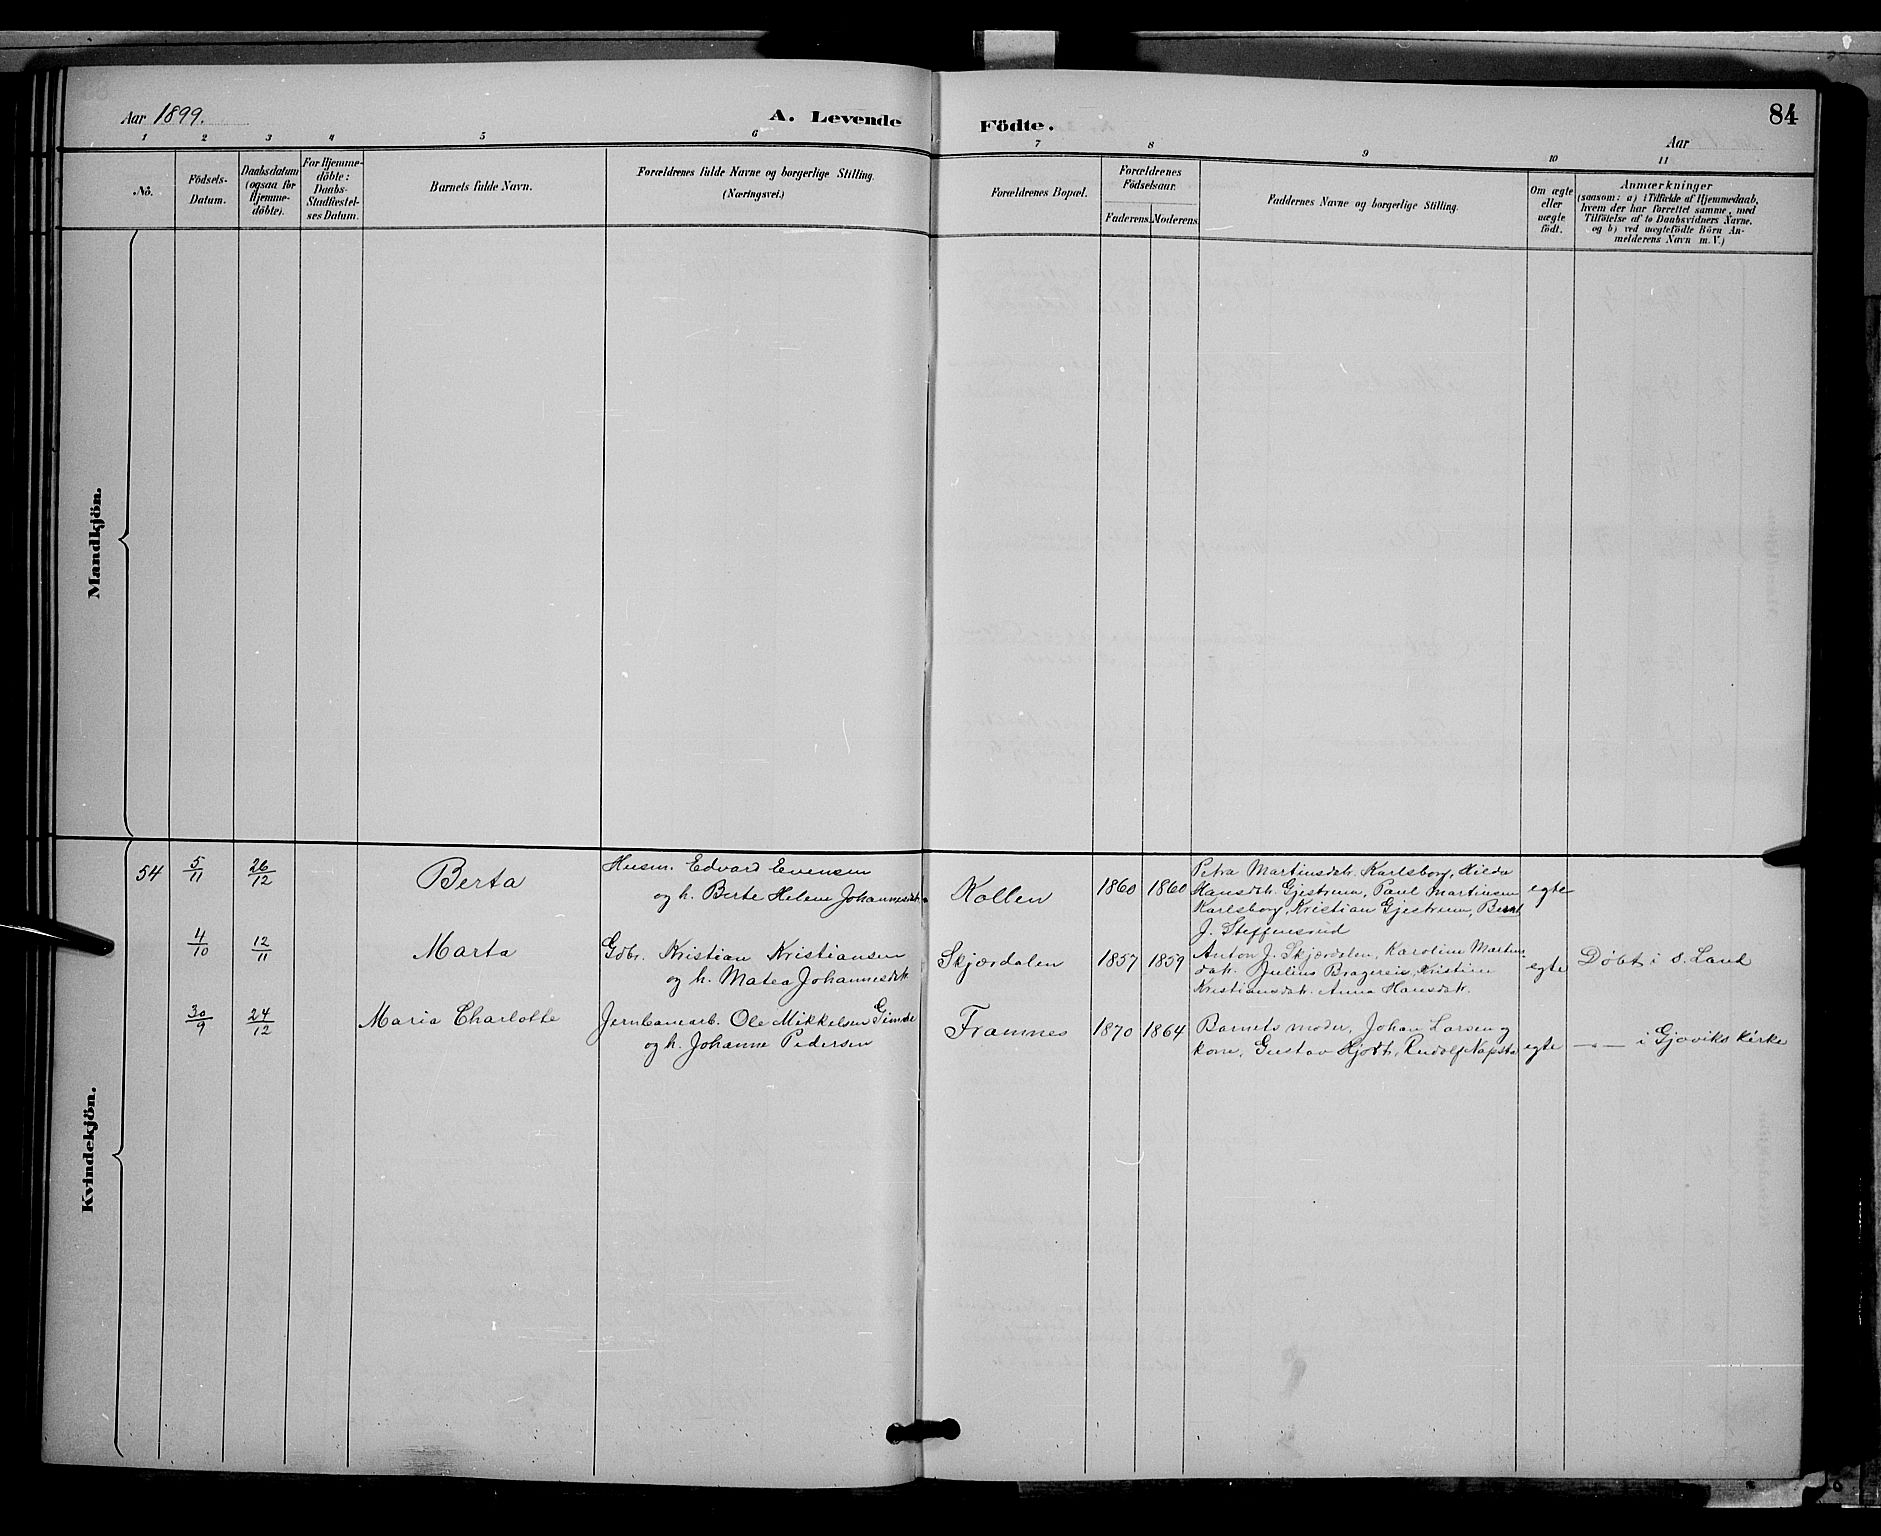 84
Aar 1899.
A. Levende Födte.
Aar
1 2 3 4 5 6 7 8 9 10 11
No.
Födsels-
Datum.
Daabsdatum
(ogsaa for
Hjemme-
döbte).
For Hjemme-
döbte:
Daabs-
Stadfæstel-
ses Datum.
Barnets fulde Navn.
Forældrenes fulde Navne og borgerlige Stilling.
(Næringsvei.)
Forældrenes Bopæl.
Forældrenes
Födselsaar.
Faderens. Moderens.
Faddernes Navne og borgerlige Stilling.
Om ægte
eller
uægte
födt.
Anmærkninger
(saasom: a) i Tilfælde af Hjemmedaab,
hvem der har forrettet samme, med
Tilföielse af to Daabsvidners Navne,
og b) ved uægtefödte Börn An-
melderens Navn m. V.)
Mandkjön.
Kvindekjön.
54 5/11 26/12 Berta
Husm. Edvard Evensen
og h. Berte Helene Johannesdtr.
Kollen 1860 1860
Petra Martinsdtr. Karlsborg, Hilda
Hansdtr. Gjestrum, Paul Martinsen
Karlsborg, Kristian Gjestrum, Bernt
J. Steffensrud
egte
4/10 12/11 Marta
Gdbr. Kristian Kristiansen
og h. Matea Johannesdtr.
Skjærdalen 1857 1859
Anton J. Skjærdalen, Karoline Martins-
dtr. Julius Bragereie, Kristine
Kristiansdtr. Anna Hansdtr.
egte Döbt i S. Land
30/9 24/12 Maria Charlotte
Jernbanearb. Ole Mikkelsen Gimde
og h. Johanne Pedersen
Framnes 1870 1864
Barnets moder, Johan Larsen og
kone, Gustav Hjorth, Rudolf Napsta
egte —"— i Gjøviks Kirke